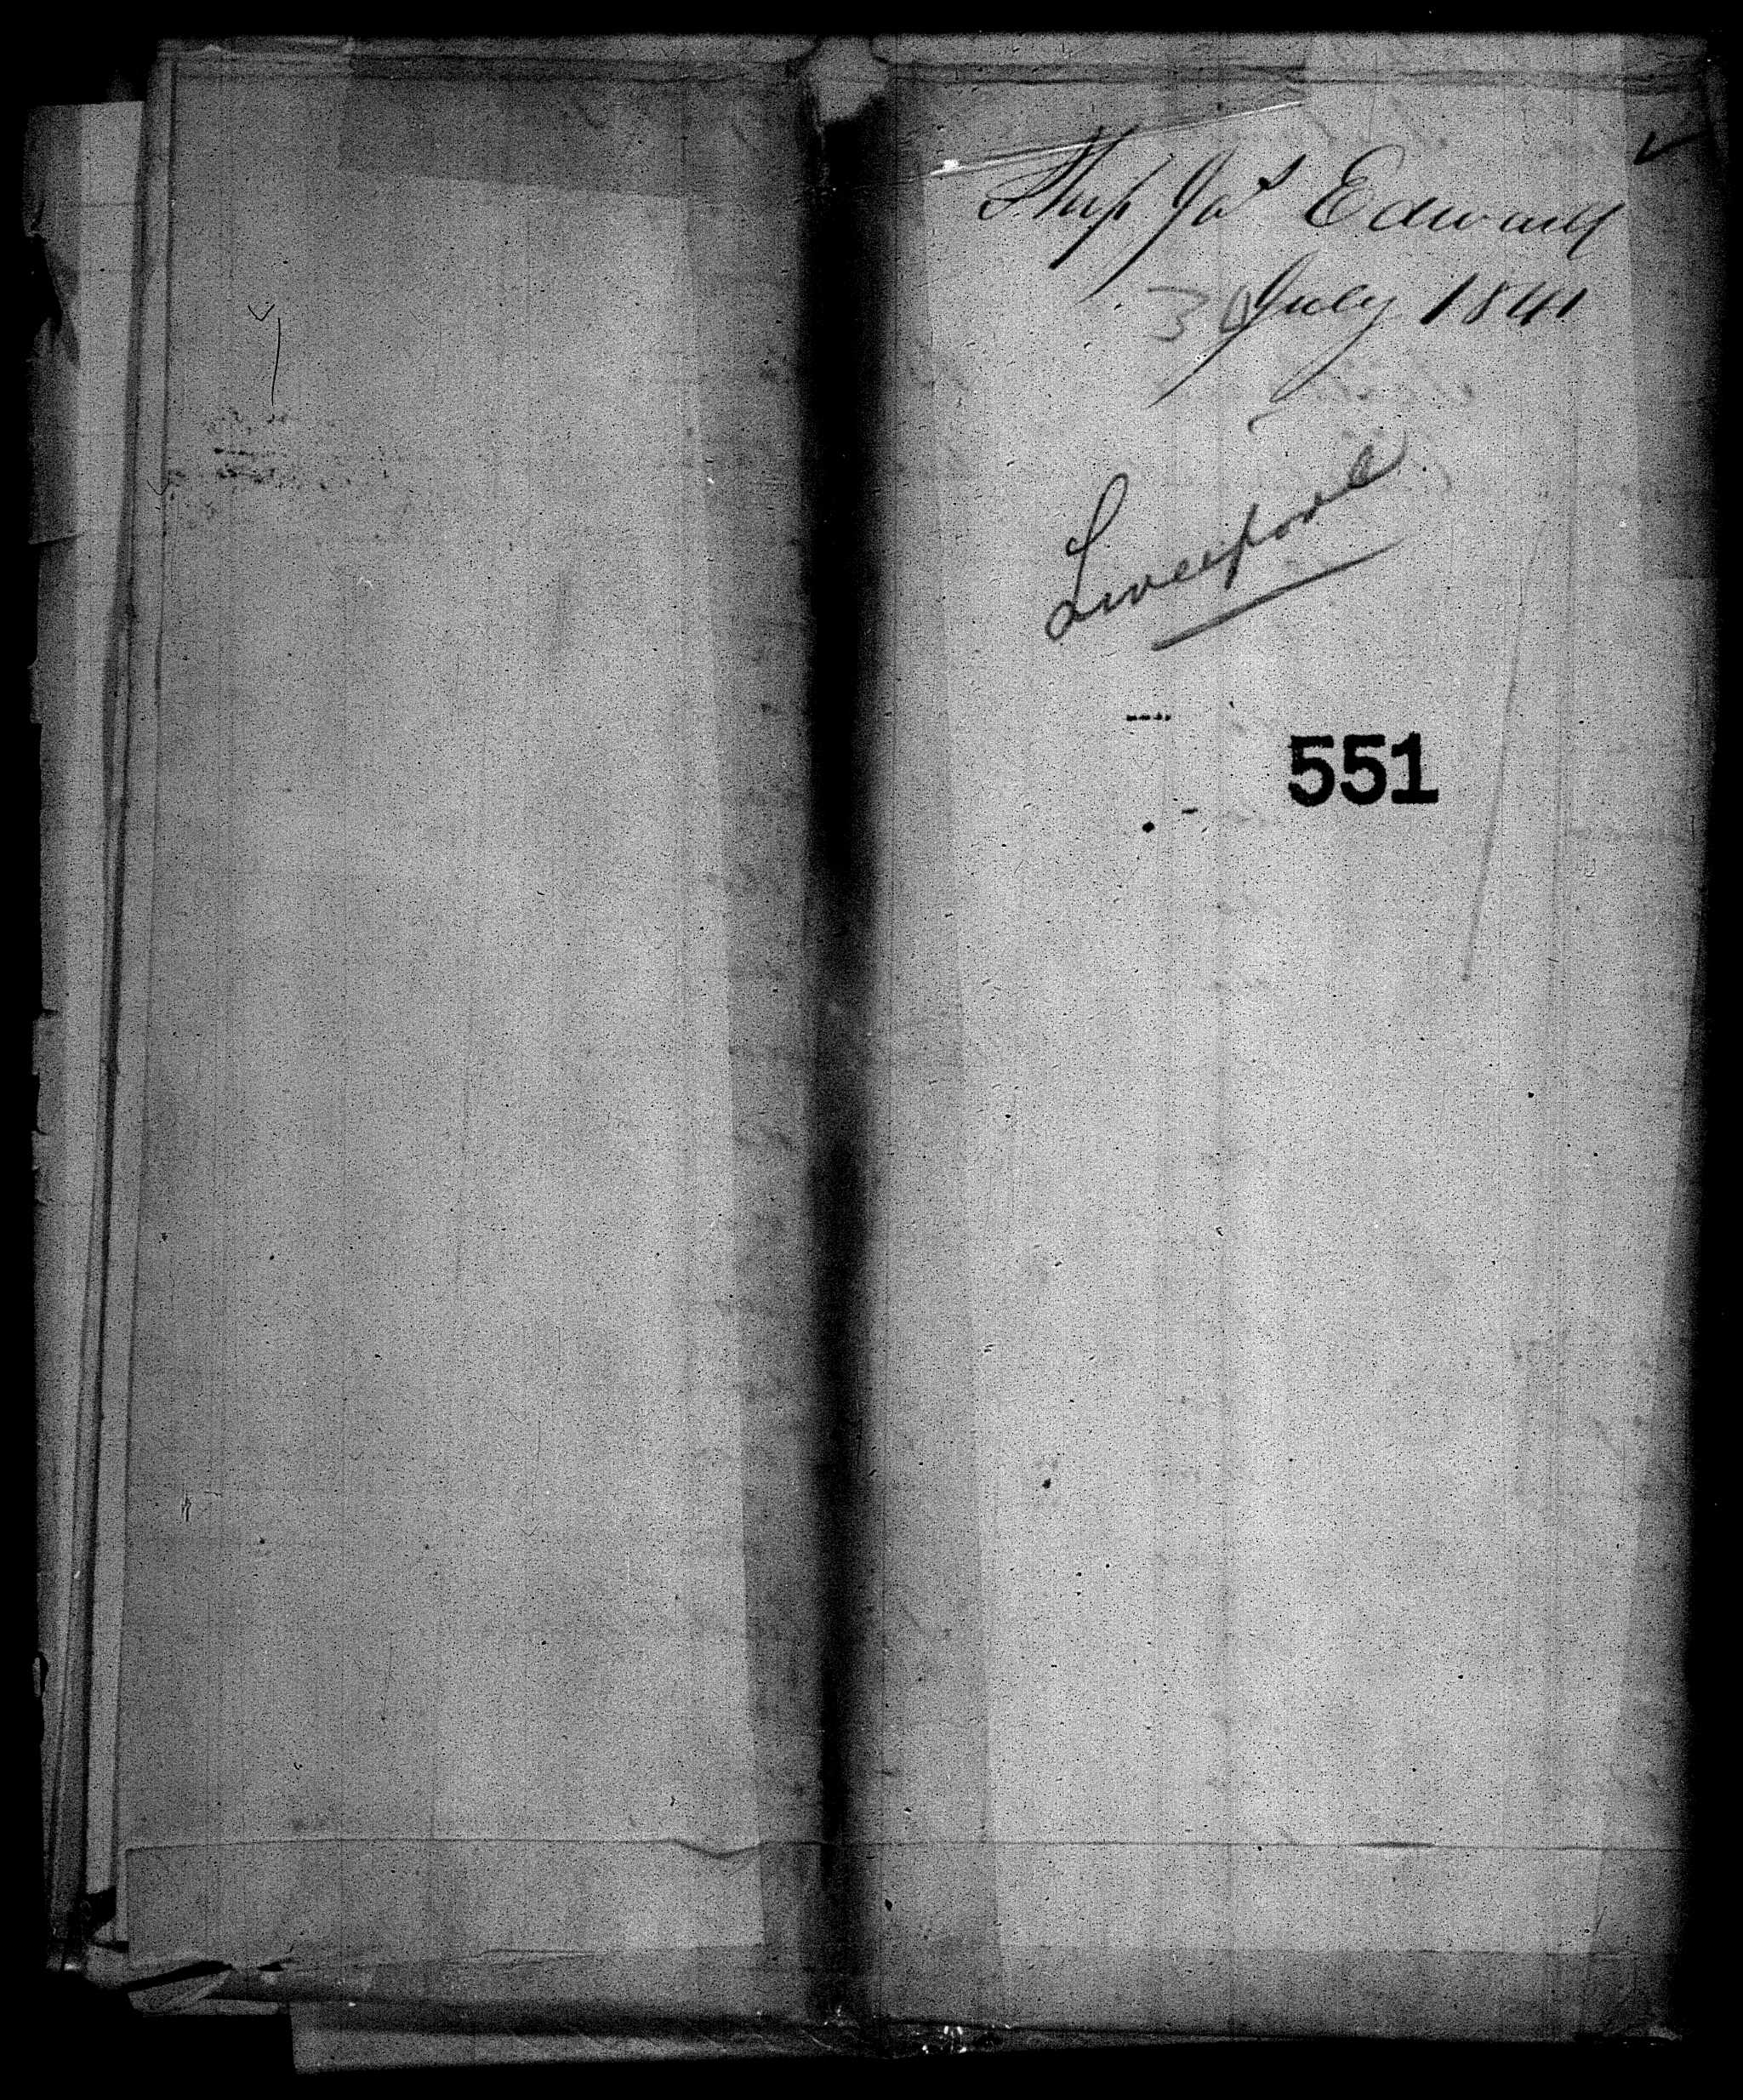 Ship Jas Edward
30 July 1841
Liverpool
551